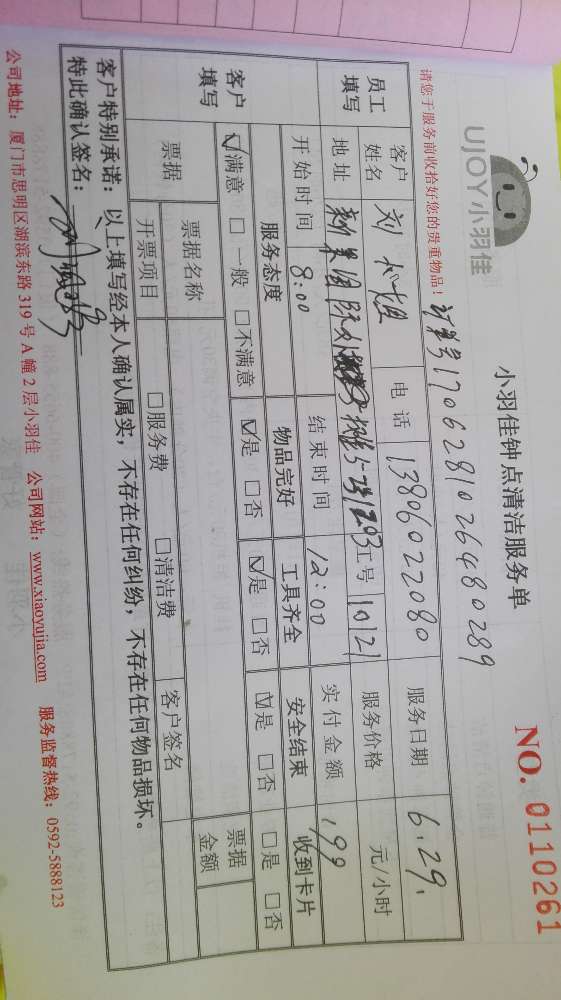 UJOY小羽佳
小羽佳钟点清洁服务单
NO. 0110261
请您于服务前收拾好您的贵重物品!
订单号1706281026480289
员工填写
客户姓名 刘 姐 电话 13806022080 服务日期 6.29.
地址 工号 10121 服务价格 元/小时
开始时间 8:00 结束时间 12:00 实付金额 199
客户填写
服务态度 物品完好 工具齐全 安全结束 收到卡片
☑满意 □一般 □不满意 ☑是 □否 ☑是 □否 ☑是 □否 □是 □否
票据 票据名称 票据金额
开票项目 □服务费 □清洁费 客户签名
客户特别承诺:以上填写经本人确认属实,不存在任何纠纷,不存在任何物品损坏。
特此确认签名:
公司地址:厦门市思明区湖滨东路 319 号 A 幢 2 层小羽佳 公司网站:www.xiaoyujia.com 服务监督热线:0592-5888123